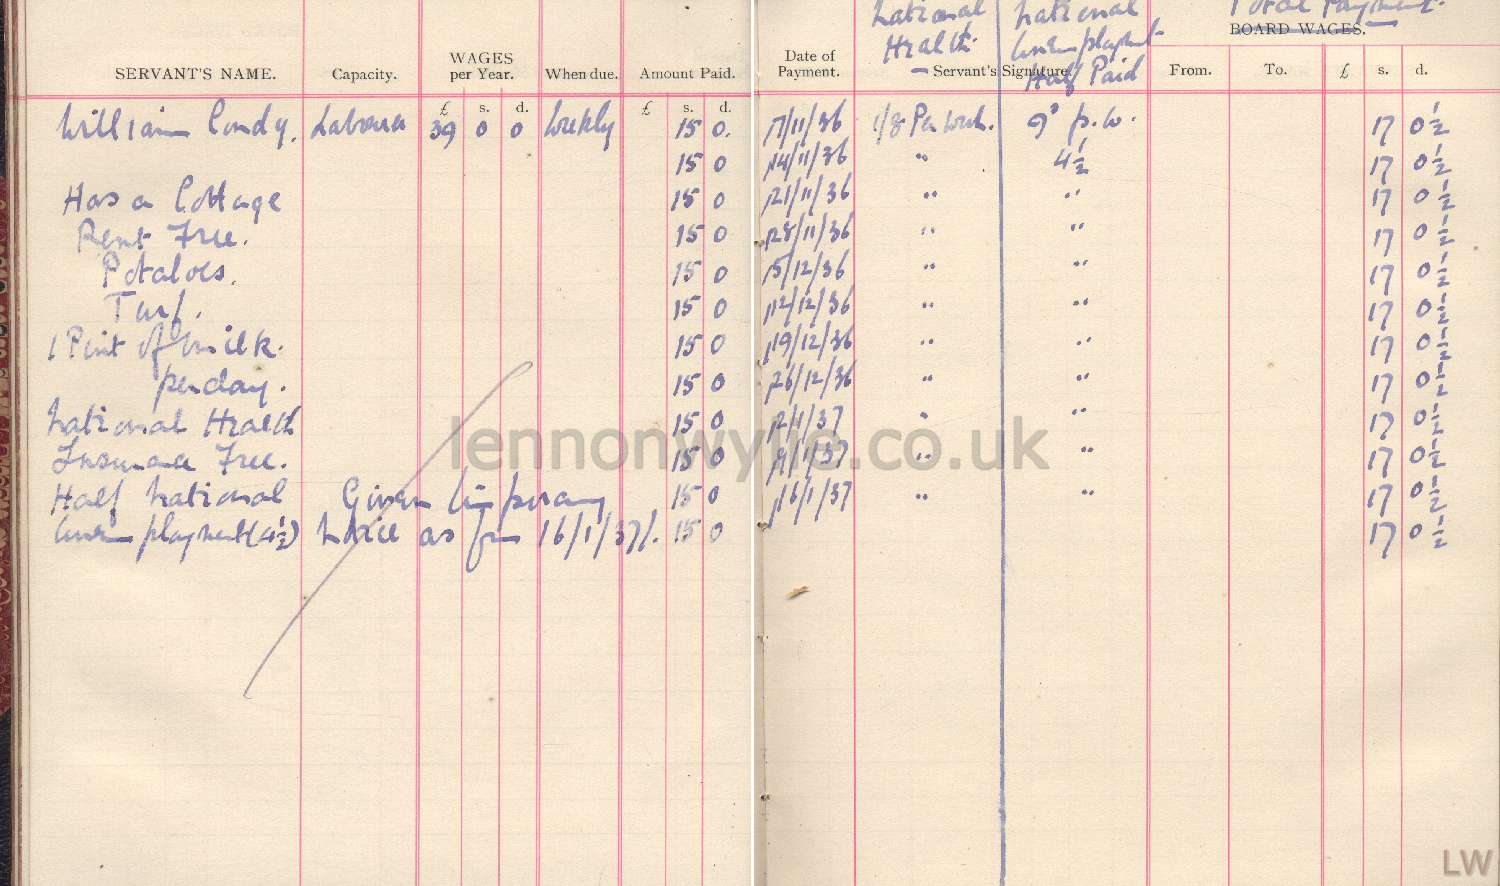 National National Total Payment.
Health. Unemployment- BOARD WAGES.
SERVANT'S NAME. Capacity. WAGES per Year. When due. Amount Paid. Date of Payment. Servant's Signature. Half Paid From. To. £ s. d.
£ s. d. £ s. d.
William Condy. Labourer 39 0 0 Weekly 15 0. 7/11/36 1/8 Per week. 9d p.w. 17 0 1/2
15 0 14/11/36 " 4 1/2 17 0 1/2
Has a Cottage 15 0 21/11/36 " " 17 0 1/2
Rent Free. 15 0 28/11/36 " " 17 0 1/2
Potatoes. 15 0 5/12/36 " " 17 0 1/2
Turf. 15 0 12/12/36 " " 17 0 1/2
1 Pint of milk. 15 0 19/12/36 " " 17 0 1/2
per day. 15 0 26/12/36 " " 17 0 1/2
National Health 15 0 2/1/37 " " 17 0 1/2
Insurance Free. 15 0 9/1/37 " " 17 0 1/2
Half National Given temporary 15 0 16/1/37 " " 17 0 1/2
Unemployment (4 1/2) notice as from 16/1/37. 15 0 17 0 1/2
lennonwylie.co.uk
LW